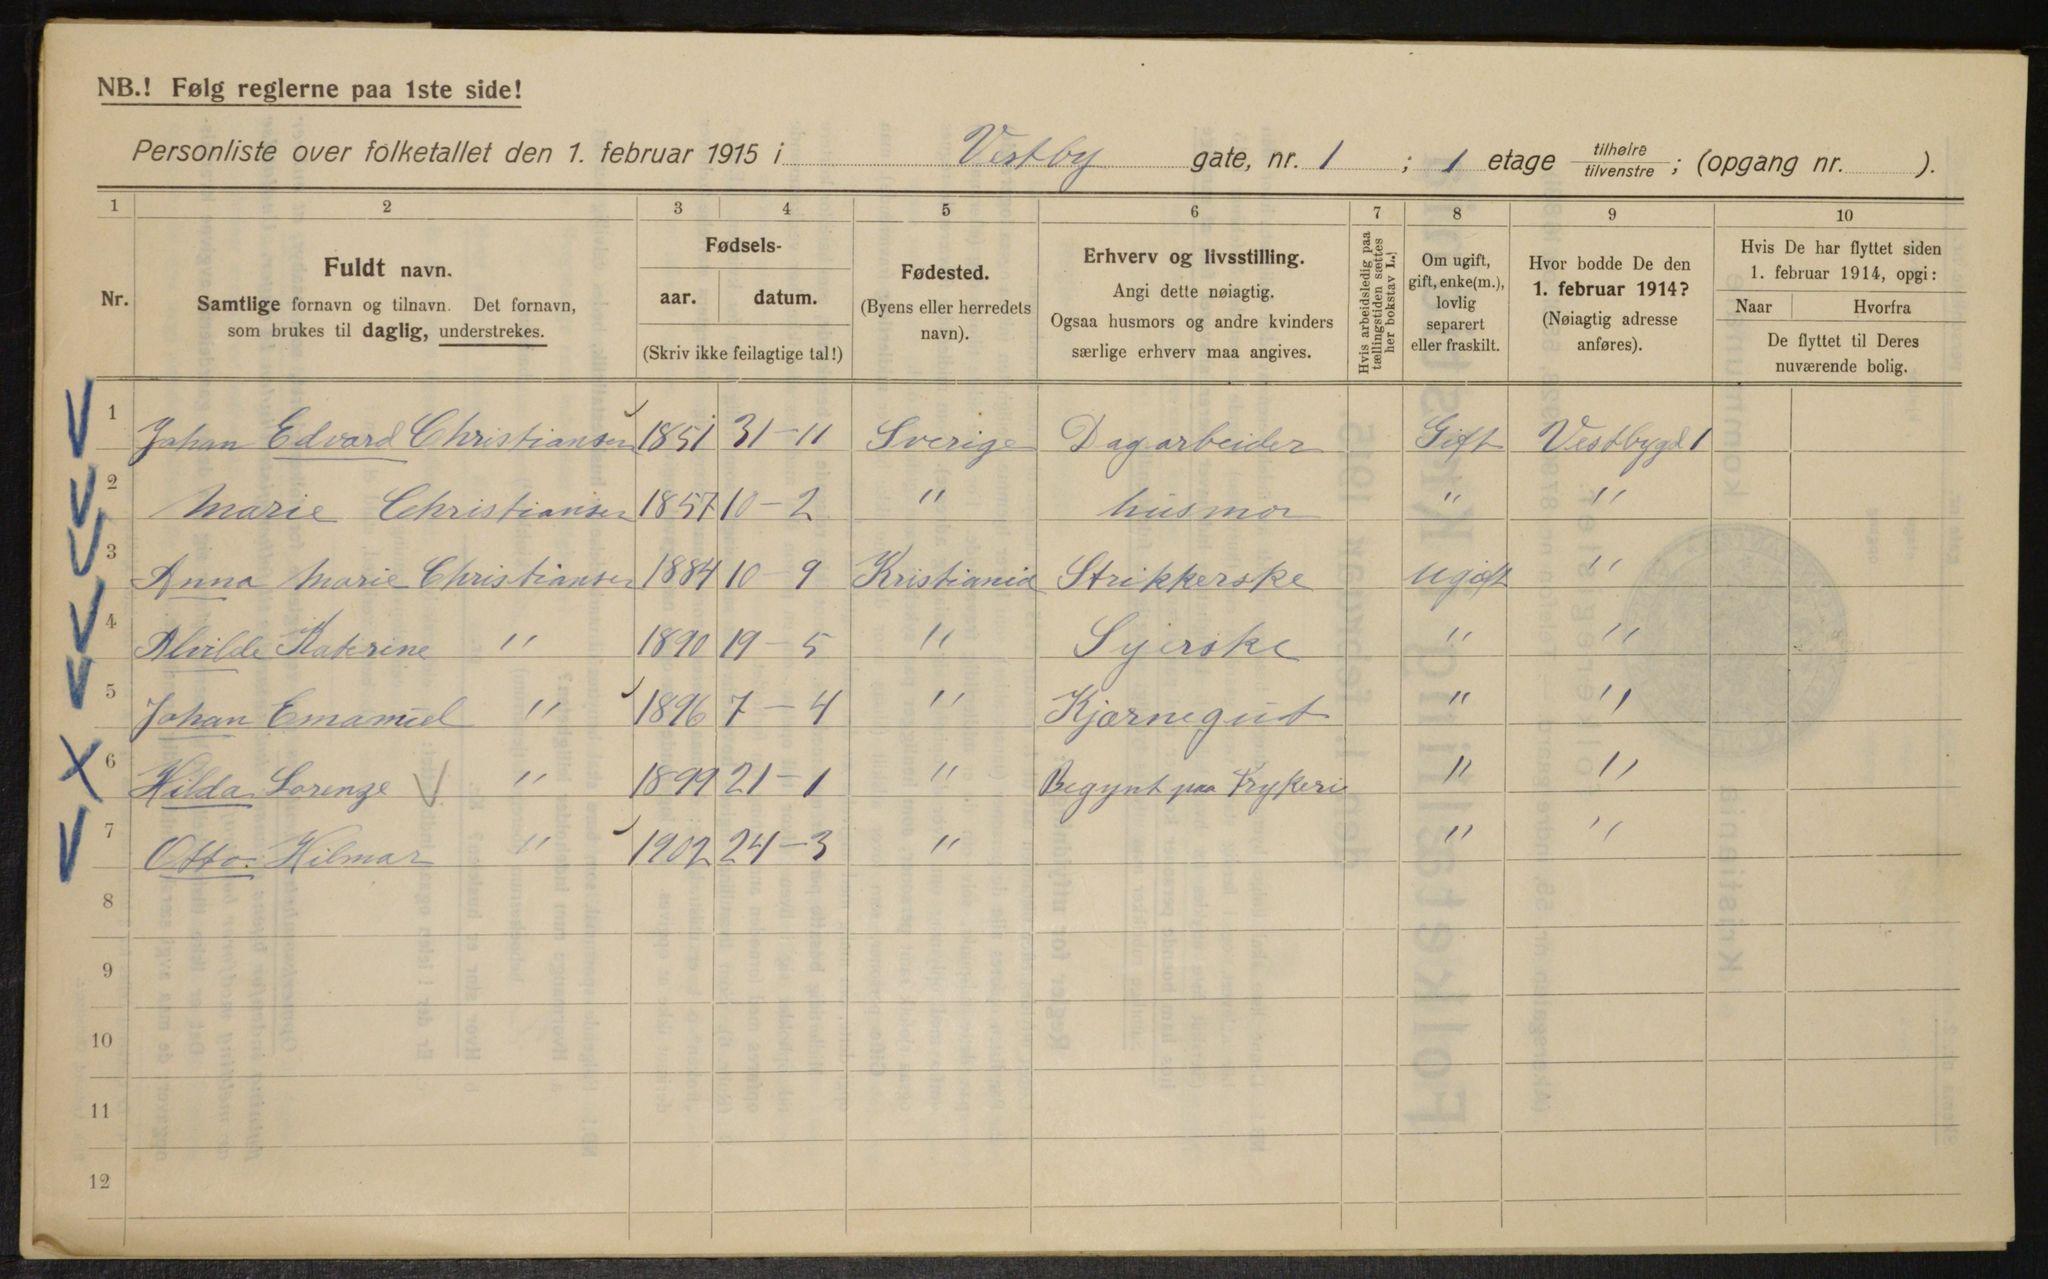 NB.! Følg reglerne paa 1ste side!
Personliste over folketallet den 1. februar 1915 i Vestby gate, nr. 1 ; 1 etage tilhøire tilvenstre ; (opgang nr. ).
1 2 3 4 5 6 7 8 9 10
Nr.
Fuldt navn.
Samtlige fornavn og tilnavn. Det fornavn,
som brukes til daglig, understrekes.
Fødsels-
aar. datum.
(Skriv ikke feilagtige tal!)
Fødested.
(Byens eller herredets
navn).
Erhverv og livsstilling.
Angi dette nøiagtig.
Ogsaa husmors og andre kvinders
særlige erhverv maa angives.
Hvis arbeidsledig paa
tællingstiden sættes
her bokstav L.!
Om ugift,
gift, enke(m.),
lovlig
separert
eller fraskilt.
Hvor bodde De den
1. februar 1914?
(Nøiagtig adresse
anføres).
Hvis De har flyttet siden
1. februar 1914, opgi:
Naar Hvorfra
De flyttet til Deres
nuværende bolig.
1 Johan Edvard Christiansen 1851 31-11 Sverige Dagarbeider Gift Vestbygd 1
2 Marie Christiansen 1857 10-2 " husmor " "
3 Anna Marie Christiansen 1884 10-9 Kristiania Strikkerske Ugift "
4 Alvilde Katrine " 1890 19-5 " Syerske " "
5 Johan Emanuel " 1896 7-4 " Kjørnegut " "
6 Hilda Lorenze " 1899 21-1 " Begynt paa Trykeri " "
7 Otto Hilmar " 1902 24-3 " " "
8
9
10
11
12